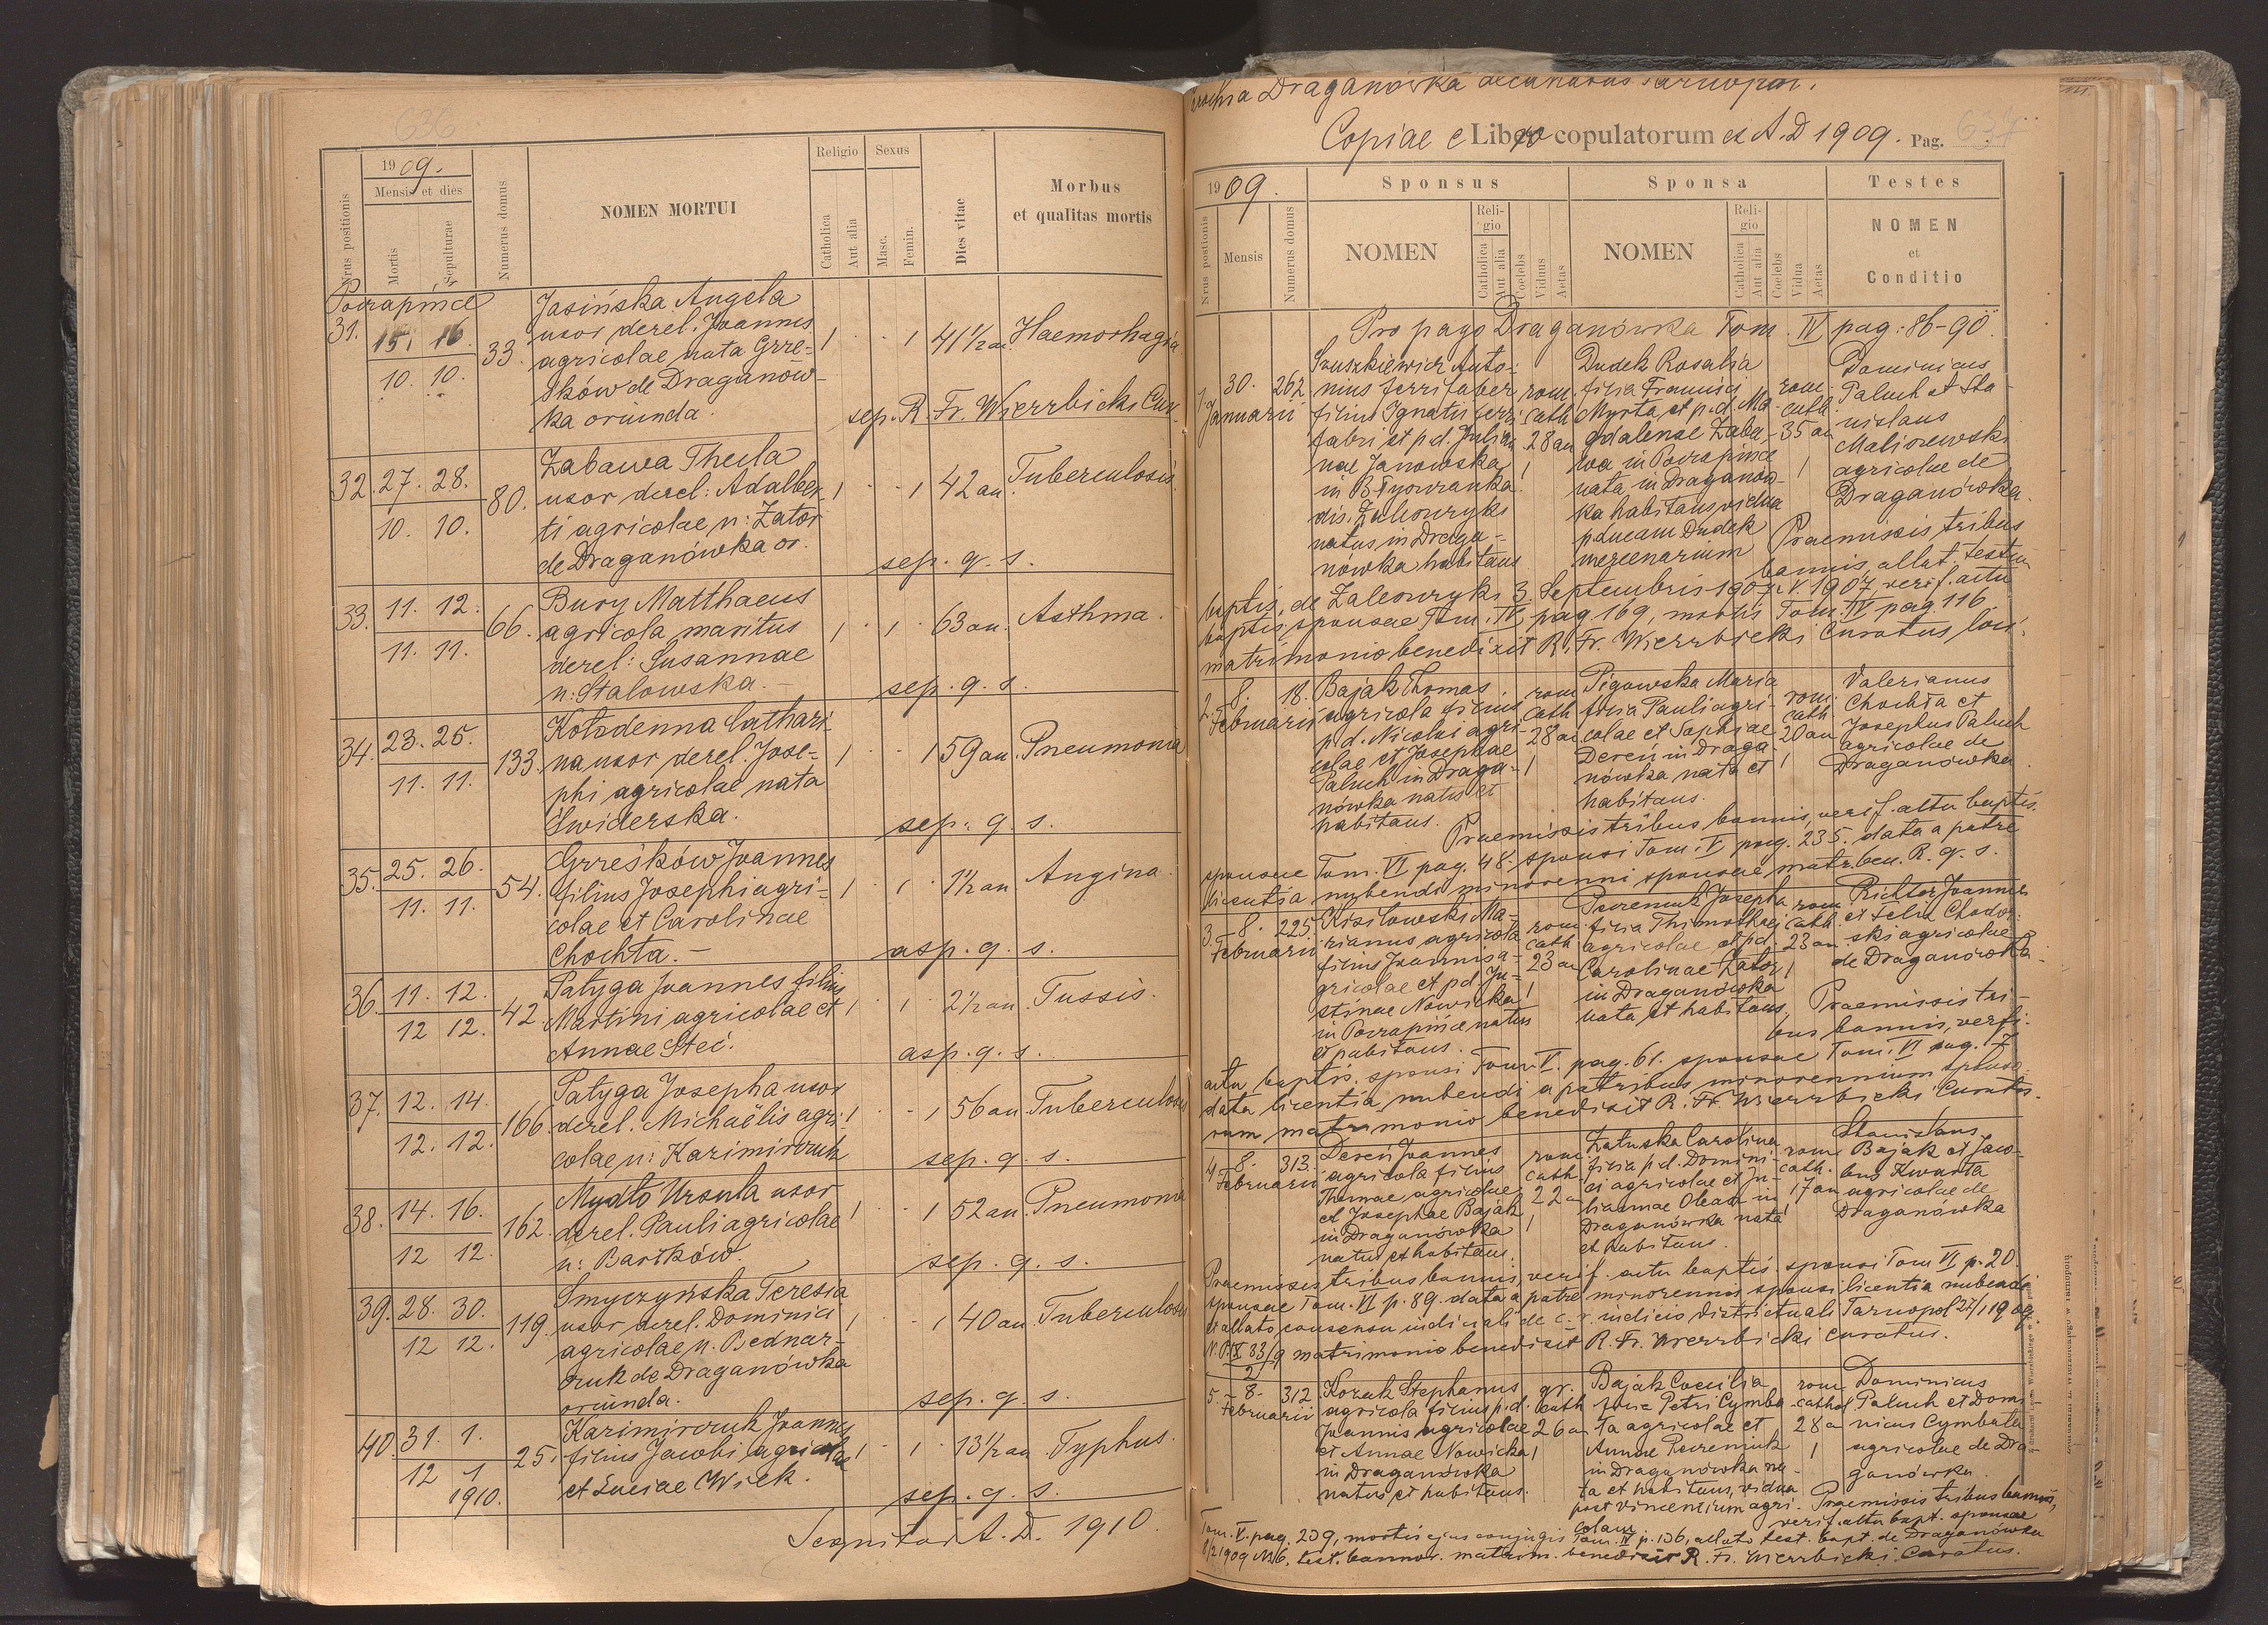 636
1909.
Mensis et dies
Nrus positionis
Mortis
Sepulturae
Numerus domus
NOMEN MORTUI
Religio
Catholica
Aut alia
Sexus
Masc.
Femin.
Dies vitae
Morbus
et qualitas mortis
31. 15. 16. 33. Jasińska Angela
uxor derel. Joannis 1 1 41 1/2 an. Haemorhagia
agricolae nata Grze-
10. 10. śków de Draganów-
ka oriunda. sep. R. Fr. Wierzbicki Cur.
32. 27. 28. 80. Zabawa Thecla
uxor derel: Adalber- 1 1 42 an. Tuberculosis
10. 10. ti agricolae n: Zator
de Draganówka or. sep. q. s.
33. 11. 12. 66. Bury Matthaeus
agricola maritus 1 1 63 an. Asthma.
11. 11. derel: Susannae
n: Stalowska. sep. q. s.
34. 23. 25. 133. Kołodenna Cathari-
na uxor derel. Jose- 1 1 59 an. Pneumonia
11. 11. phi agricolae nata
Świderska. sep. q. s.
35. 25. 26. 54. Grześków Joannes
filius Josephi agri- 1 1 1 1/2 an Angina.
11. 11. colae et Carolinae
Chochta. asp. q. s.
36. 11. 12. 42. Patyga Joannes filius
Martini agricolae et 1 1 2 1/2 an Tussis.
12 12. Annae Steć. asp. q. s.
37. 12. 14. 166. Patyga Josepha uxor
derel. Michaëlis agri- 1 1 56 an Tuberculosis
12. 12. colae n: Kazimirczuk sep. q. s.
38. 14. 16. 162. Mydło Ursula uxor
derel. Pauli agricolae 1 1 52 an. Pneumonia
12 12. n: Bartków. sep. q. s.
39. 28. 30. 119. Smyczyńska Teresia
uxor derel. Dominici 1 1 40 an Tuberculosis
12 12. agricolae n. Bednar-
czuk de Draganówka
oriunda. sep. q. s.
40. 31. 1. 25. Kazimirczuk Joannes
filius Jacobi agricolae 1 1 13 1/2 an Typhus.
12 1 1910. et Luciae Wilk. sep. q. s.
Sequitur A. D. 1910.
Draganówka decanatus Tarnopol.
Copiae e Libro copulatorum ex A. D 1909. Pag. 637
1909.
Sponsus
Sponsa
Testes
Nrus positionis
Mensis
Numerus domus
NOMEN
Religio
Catholica
Aut alia
Coelebs
Viduus
Aetas
NOMEN
Religio
Catholica
Aut alia
Coelebs
Vidua
Aetas
NOMEN
et
Conditio
Pro pago Draganówka Tom. IV pag: 86-90.
1. 30. Januarii 262
Szuszkiewicz Anto-
nius ferri faber
filius Ignatii ferri
fabri et p. d. Julian-
nae Janowska
in
dis. Zaleszczyki
natus in Draga-
nówka habitans
rom. cath 28 an 1
Dudek Rosalia
filia Francisci
Myrta et p. d. Ma-
gdalenae Zaba-
wa in Poczapińce
nata in Draganów-
ka habitans vidua
p. ducam Dudek
mercenarium
rom. cath. 35 an 1
Dominicus
Paluch et Sta-
nislaus
Maliszewski
agricolae de
Draganówka.
Praemissis tribus
bannis, allat. testim.
baptis. de Zaleszczyki 3. Septembris 1907 verif. actu
baptis sponsae Tom. IV pag. 169, mortis Tom. IV pag. 116
matrimonio benedixit R. Fr. Wierzbicki Curatus loci.
2. 8. Februarii 18.
Bajak Thomas
agricola filius
p. d. Nicolai agri-
colae et Josephae
Paluch in Draga-
nówka natus et
habitans.
rom cath 28 an 1
Pigowska Maria
filia Pauli agri-
colae et Sophiae
Dereń in Draga-
nówka nata et
habitans.
rom. cath 20 an 1
Valerianus
Chochta et
Josephus Paluch
agricolae de
Draganówka.
Praemissis tribus bannis, verif. actu baptis.
sponsae Tom. VI pag. 48. sponsi Tom. V pag. 235. data a patre
licentia nubendi minorenni sponsae matr. ben. R. q. s.
3. 8. Februarii 225.
Kisilowski Ma-
rianus agricola
filius Joannis a-
gricolae et p d Ju-
stinae Nowicka
in Poczapińce natus
et habitans.
rom cath 23 an 1
Pszeniuk Josepha
filia Thimothei
agricolae et p d.
Carolinae Zator
in Draganówka
nata et habitans,
rom cath. 23 an 1
Richter Joannes
et Felix Chodor-
ski agricolae
de Draganówka.
Praemissis tri-
bus bannis, verifi.
actu baptis. sponsi Tom. V. pag. 61. sponsae Tom. VI pag. 7
data licentia nubendi a patribus minorennium sponso-
rum matrimonio benedixit R. Fr. Wierzbicki Curatus.
4. 8. Februarii 313.
Dereń Joannes
agricola filius
Thomae agricolae
et Josephae Bajak
in Draganówka
natus et habitans.
rom cath 22 an 1
Załuska Carolina
filia p. d. Domini-
ci agricolae et Ju-
liannae Olear in
Draganówka nata
et habitans.
rom cath. 17 an
Stanislaus
Bajak et Jaco-
bus Kwarta
agricolae de
Draganówka
Praemissis tribus bannis, verif. actu baptis. sponsi Tom VI p. 20.
sponsae Tom. VI p. 89. data a patre minorennis sponsi licentia nubendi
et allato consensu iudiciali de c. r. iudicio districtuali Tarnopol 27/1 1909
N. P. IX 33/9 matrimonio benedixit R. Fr. Wierzbicki curatus.
2
5. 8. Februarii 312.
Kozak Stephanus
agricola filius p. d.
Joannis agricolae
et Annae Nowicka
in Draganówka
natus et habitans.
gr. cath 26 an 1
Bajak Coecilia
filia Petri Cymba-
ta agricolae et
Annae Pszeniuk
in Draganówka na-
ta et habitans, vidua
post Vincentium agri-
colam
rom cathol 28 a 1
Dominicus
Paluch et Domi-
nicus Cymbała
agricolae de Dra-
ganówka.
Praemissis tribus bannis,
verif. actu bapt. sponsae
Tom. V. pag. 239, mortis ejus conjugis Tom. IV p. 136, allato test. bapt. de Draganówka
8/2 1909 N 16, test. bannor. matrim. benedixit R. Fr. Wierzbicki Curatus.